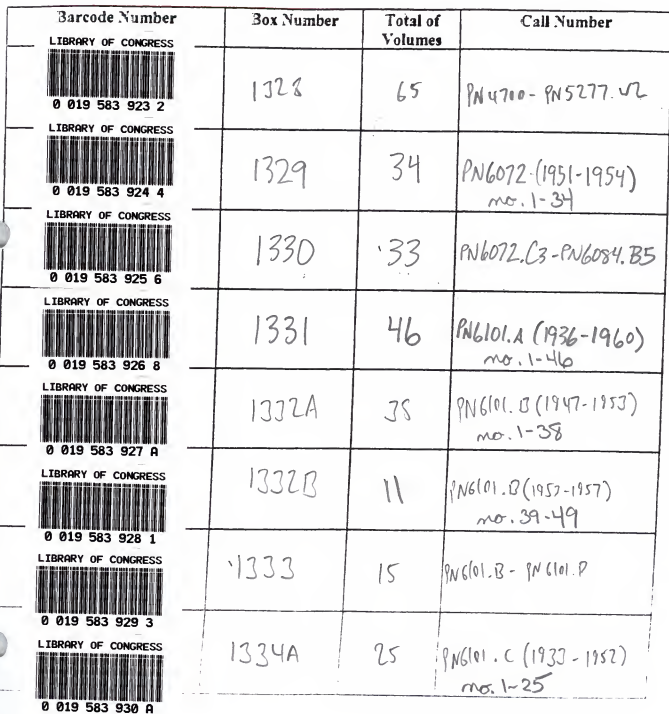 Barcode Number Box Number Total of Volumes Call Number
LIBRARY OF CONGRESS
0 019 583 923 2
1328 65 PN4700 - PN5277.
LIBRARY OF CONGRESS
0 019 583 924 4
1329 34 PN6072.(1951-1954)
no. 1-34
LIBRARY OF CONGRESS
0 019 583 925 6
1330 33 PN6072.C3-PN6084.B5
LIBRARY OF CONGRESS
0 019 583 926 8
1331 46 PN6101.A (1936-1960)
no. 1-46
LIBRARY OF CONGRESS
0 019 583 927 A
1332A 38 PN6101.B (1947-1953)
no. 1-38
LIBRARY OF CONGRESS
0 019 583 928 1
1332B 11 PN6101.B (1957-1957)
no. 39-49
LIBRARY OF CONGRESS
0 019 583 929 3
1333 15 PN6101.B - PN6101.P
LIBRARY OF CONGRESS
0 019 583 930 A
1334A 25 PN6101.C (1933-1952)
no. 1-25